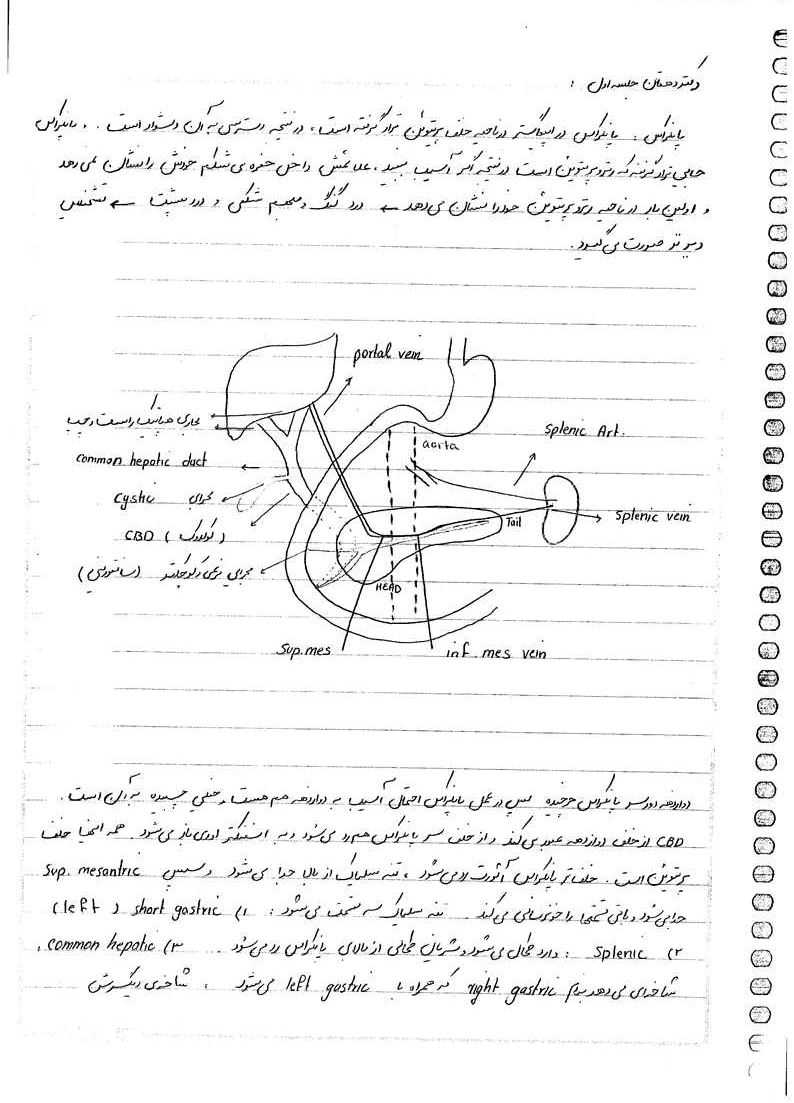 دکتر دهقان جلسه اول :
پانکراس : پانکراس در اپیگاستر در ناحیه خلف پریتوئن قرار گرفته است ، در نتیجه دسترسی به آن دشوار است . پانکراس
جایی قرار گرفته که رتروپریتوئن است در نتیجه اگر آسیب ببیند ، علائمش داخل حفره ی شکم خودش را نشان نمی دهد
و اولین بار در ناحیه رتروپریتوئن خود را نشان می دهد ← درد گنگ و مبهم شکمی و درد پشت ← تشخیص
دیرتر صورت می گیرد .
portal vein
مجاری هپاتیک راست و چپ
aorta
splenic Art.
common hepatic duct
مجرای cystic
Splenic vein
Tail
CBD ( کلدوک )
مجرای فرعی پانکراس ( سانتورینی )
HEAD
Sup. mes
inf. mes vein
دوازدهه دور سر پانکراس چرخیده پس در عمل پانکراس احتمال آسیب به دوازدهه هم هست ، خیلی چسبیده به آن است .
CBD از خلف دوازدهه عبور می کند و از خلف سر پانکراس هم رد می شود و به اسفنکتر اودی باز می شود . همه اینها خلف
پریتوئن است . خلف تر پانکراس آئورت رد می شود ، تنه سلیاک از بالا جدا می شود و سپس Sup. mesantric
جدا می شود و باقی قسمتها را خونرسانی می کند . تنه سلیاک سه قسمت می شود : ۱) short gastric ( left )
۲) Splenic : وارد طحال می شود و شریان طحالی از بالای پانکراس رد می شود . ۳) common hepatic ،
شاخه ای می دهد بنام right gastric که همراه با left gastric می شود ، شاخه ی دیگرش